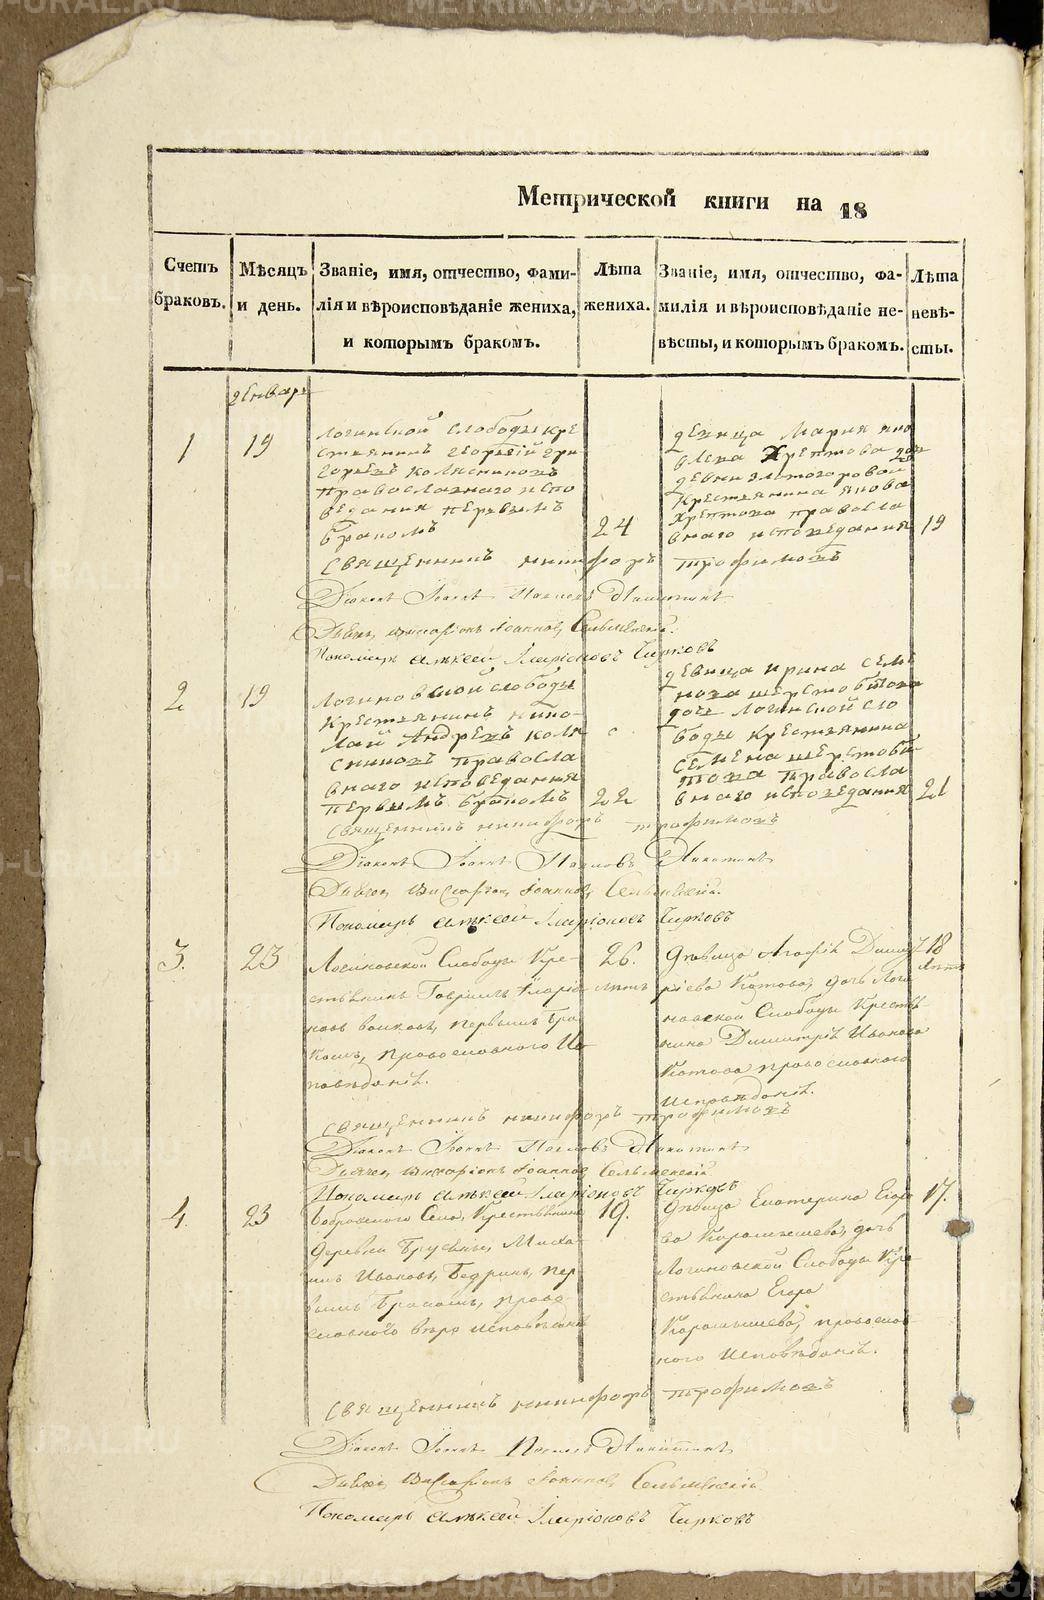 METRIKI.GASO-URAL.RU
Метрической книги на 18
Счетъ браковъ.
Мѣсяцъ и день.
Званіе, имя, отчество, фами-
лія и вѣроисповѣданіе жениха,
и которымъ бракомъ.
Лѣта
жениха.
Званіе, имя, отчество, фа-
милія и вѣроисповѣданіе не-
вѣсты, и которымъ бракомъ.
Лѣта
невѣ-
сты.
Январь
1
19
слободы кре
стьянинъ георгий гри
горьевъ колясниковъ
православнаго испо
ведания первымъ
бракомъ
24
девица Мария яко
влева Хрептова доч
крестьянина якова
Хрептова правосла
внаго исповедания
19
священникъ никифоръ трофимовъ
Діаконъ Іоаннъ Никитинъ
Дьячекъ Виссаріонъ Іоанновъ
Пономарь Алѣксей Іларіоновъ Чирковъ
2
19
Логиновской слободы
крестьянинъ нико-
лай Андреевъ коля
сниковъ правосла
внаго исповедания
первымъ бракомъ
22
девица ирина семе
нова шерстобитова
дочь логиновской сло
боды крестьянина
семена шерстоби
това правосла
внаго исповедания
21
священникъ никифоръ трофимовъ
Діаконъ Іоаннъ Никитинъ
Дьячекъ Виссаріонъ Іоанновъ
Пономарь Алѣксей Іларіоновъ Чирковъ
3.
23
Логиновской Слободы Кре-
стьянинъ Гавриилъ Иларіо
новъ Волковъ, первымъ Бра
комъ, православнаго Ис
повѣданія.
26.
лѣтъ
Дѣвица Агафія Димит
ріева Котова, дочь Логи
новской Слободы Крестья
нина Димитрія Иванова
Котова православнаго
исповѣданія.
18
лѣтъ
священникъ никифоръ трофимовъ
Діаконъ Іоаннъ Никитинъ
Дьячекъ Виссаріонъ Іоанновъ
Пономарь Алѣксей Іларіоновъ Чирковъ
4.
23
Села, Крестьянинъ
Деревни Миха-
илъ Ивановъ, Бедринъ, пер
вымъ Бракомъ, право-
славнаго исповѣданія
19.
Дѣвица Екатерина Егоро
ва дочь
Логиновской Слободы Кре
стьянина Егора
православ
наго Исповѣданія.
17.
священникъ никифоръ трофимовъ
Діаконъ Іоаннъ Никитинъ
Дьячекъ Виссаріонъ Іоанновъ
Пономарь Алѣксей Іларіоновъ Чирковъ
METRIKI.GASO-URAL.RU